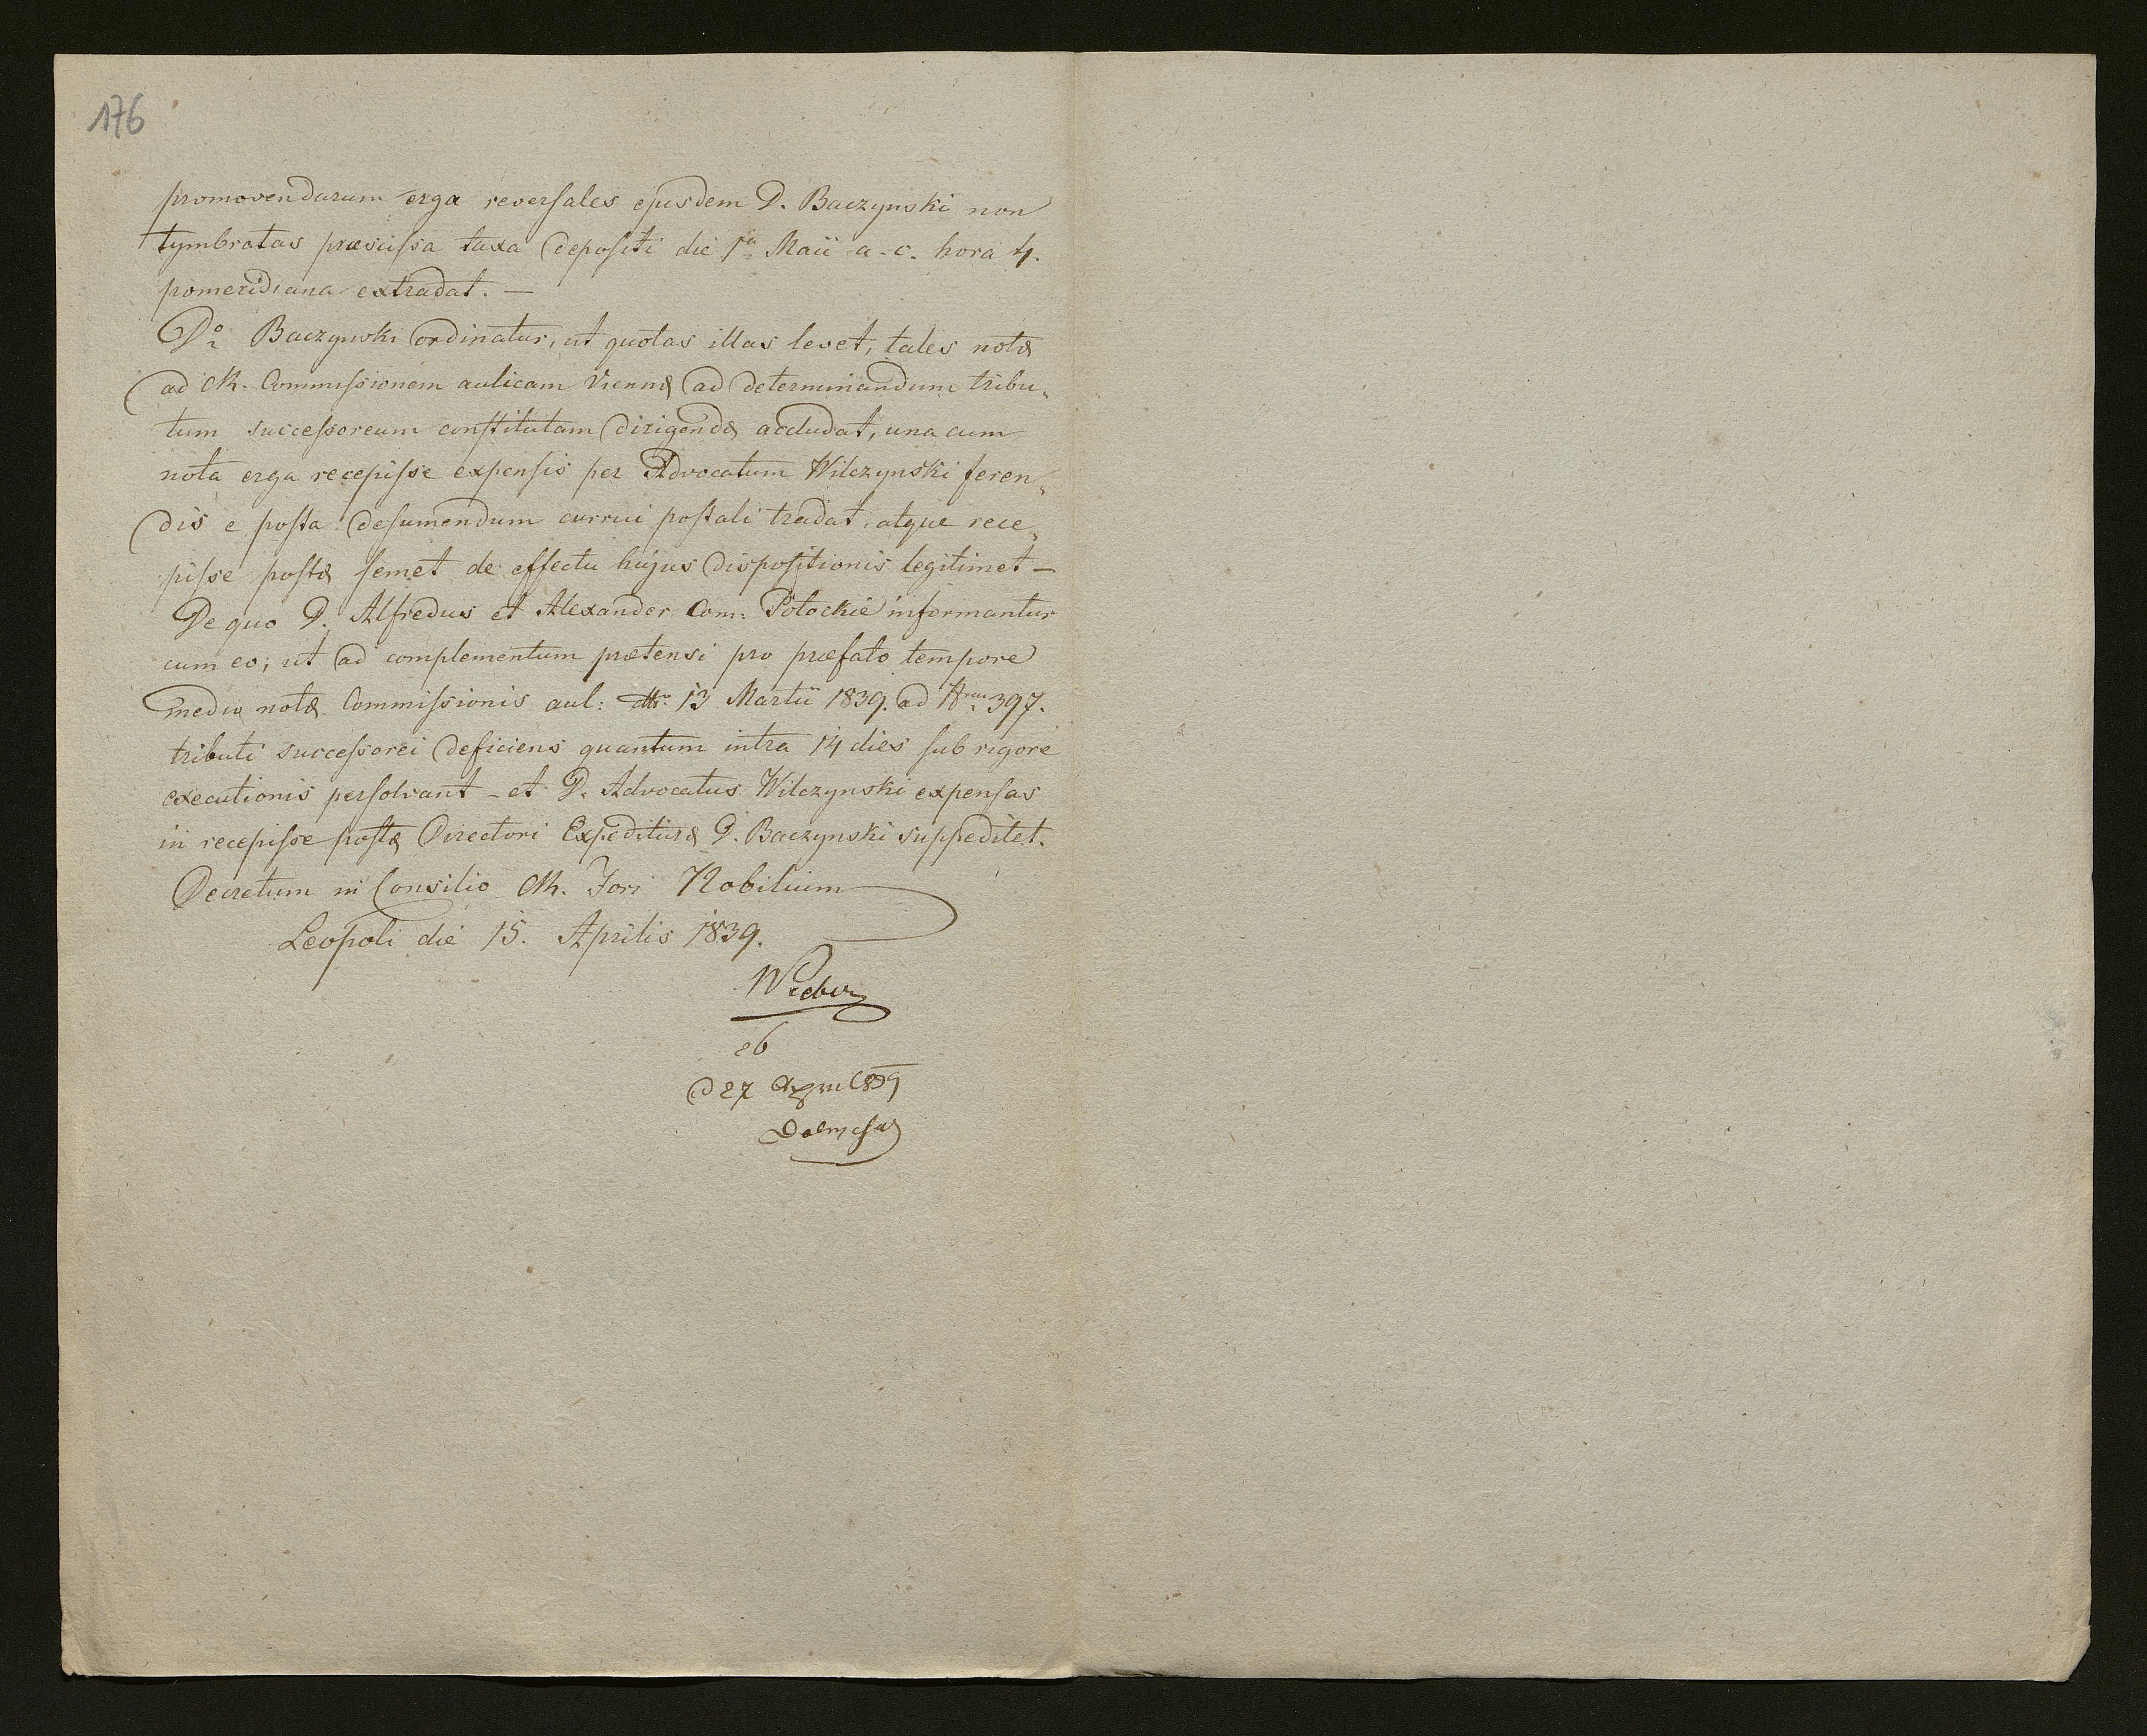 176
promovendarum erga reversales ejusdem D. Baczynski non
tymbratas præscissa taxa depositi die 1ª Maii a. c. hora 4.
pomeridiana extradat. —
Dº Baczynski ordinatur, ut quotas illas levet, tales notæ
ad Ch. Commissionem aulicam Viennæ ad determinandum tribu„
tum successoreum constitutam dirigendæ accludat, una cum
nota erga recepisse expensis per Advocatum Wilczynski feren„
dis e posta desumendum currui postali tradat, atque rece„
pisse postæ semet de effectu hujus dispositionis legitimet —
De quo D. Alfredus et Alexander Com: Potockie informantur
cum eo, ut ad complementum prætensi pro præfato tempore
medio notæ Commissionis aul: 13 Martii 1839. ad Nrum 397.
tributi successorei deficiens quantum intra 14 dies sub rigore
executionis persolvant – et D. Advocatus Wilczynski expensas
in recepisse postæ Directori Expedituræ D. Baczynski suppeditet.
Decretum in Consilio Ch. Fori Nobilium
Leopoli die 15. Aprilis 1839.
Weeber
d 27 April 839